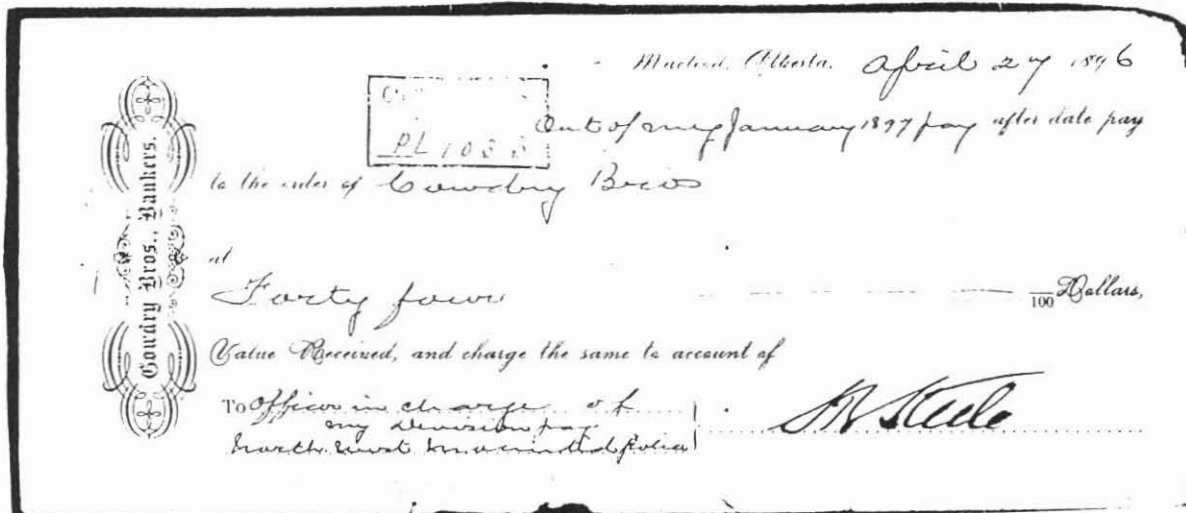 Macleod, Alberta. April 27 1896
PL 1033
Out of my January 1897 pay after date pay
to the order of Cowdry Bros
at
Forty four 100 Dollars,
Value Received, and charge the same to account of
To Officer in charge of
my Division pay
North West Mounted Police
SB Steele
Cowdry Bros., Bankers.